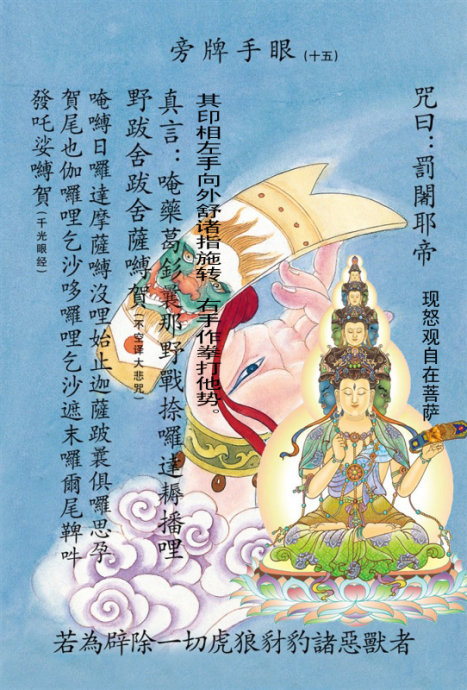 旁牌手眼(十五)
咒曰：罰闍耶帝
现怒观自在菩萨
其印相左手向外舒诸指施转　右手作拳打他势。
真言：唵藥葛釤曩那野戰捺囉達耨播哩
野跋舍跋舍薩嚩賀(不空译大悲咒)
唵嚩日囉達摩薩嚩沒哩始止迦薩跛曩俱囉思孕
賀尾也伽囉哩乞沙哆囉哩乞沙遮末囉爾尾鞞吽
發吒娑嚩賀(千光眼经)
若為辟除一切虎狼豺豹諸惡獸者